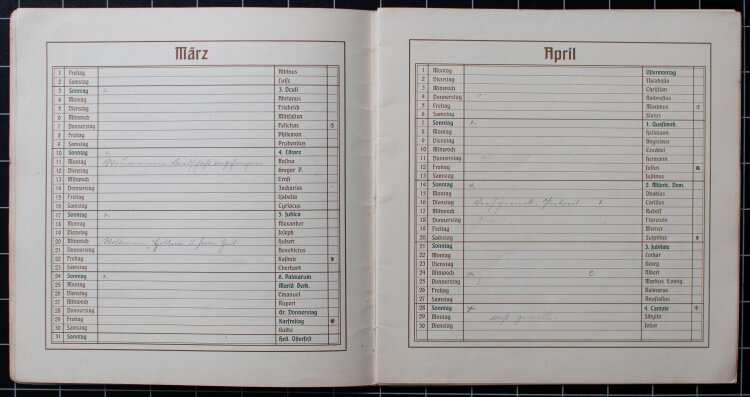 März
1 Freitag Albinus
2 Samstag Luise
3 Sonntag x 3. Oculi
4 Montag Adrianus
5 Dienstag Friedrich
6 Mittwoch Mittfasten
7 Donnerstag Felicitas
8 Freitag Philemon
9 Samstag Prudentius
10 Sonntag 4. Lätare
11 Montag Rosina
12 Dienstag Gregor P.
13 Mittwoch Ernst
14 Donnerstag Zacharias
15 Freitag Isabella
16 Samstag Cyriacus
17 Sonntag x 5. Judica
18 Montag Alexander
19 Dienstag Joseph
20 Mittwoch Hubert
21 Donnerstag Benedictus
22 Freitag Kasimir
23 Samstag Eberhard
24 Sonntag x 6. Palmarum
25 Montag Mariä Verk.
26 Dienstag Emanuel
27 Mittwoch Rupert
28 Donnerstag Gr. Donnerstag
29 Freitag Karfreitag
30 Samstag Guido
31 Sonntag Heil. Osterfest
April
1 Montag Ostermontag
2 Dienstag Theodosia
3 Mittwoch Christian
4 Donnerstag Ambrosius
5 Freitag Maximus
6 Samstag Sixtus
7 Sonntag x 1. Quasimod.
8 Montag Heilmann
9 Dienstag Bogislaus
10 Mittwoch Ezechiel
11 Donnerstag Hermann
12 Freitag Julius
13 Samstag Justinus
14 Sonntag x 2. Miseric. Dom.
15 Montag Obadias
16 Dienstag Carisius
17 Mittwoch Rudolf
18 Donnerstag Florentin
19 Freitag Werner
20 Samstag Sulpitius
21 Sonntag 3. Jubilate
22 Montag Lothar
23 Dienstag Georg
24 Mittwoch x Albert
25 Donnerstag Markus Evang.
26 Freitag Raimarus
27 Samstag Anastasius
28 Sonntag x 4. Cantate
29 Montag Sibylla
30 Dienstag Josua